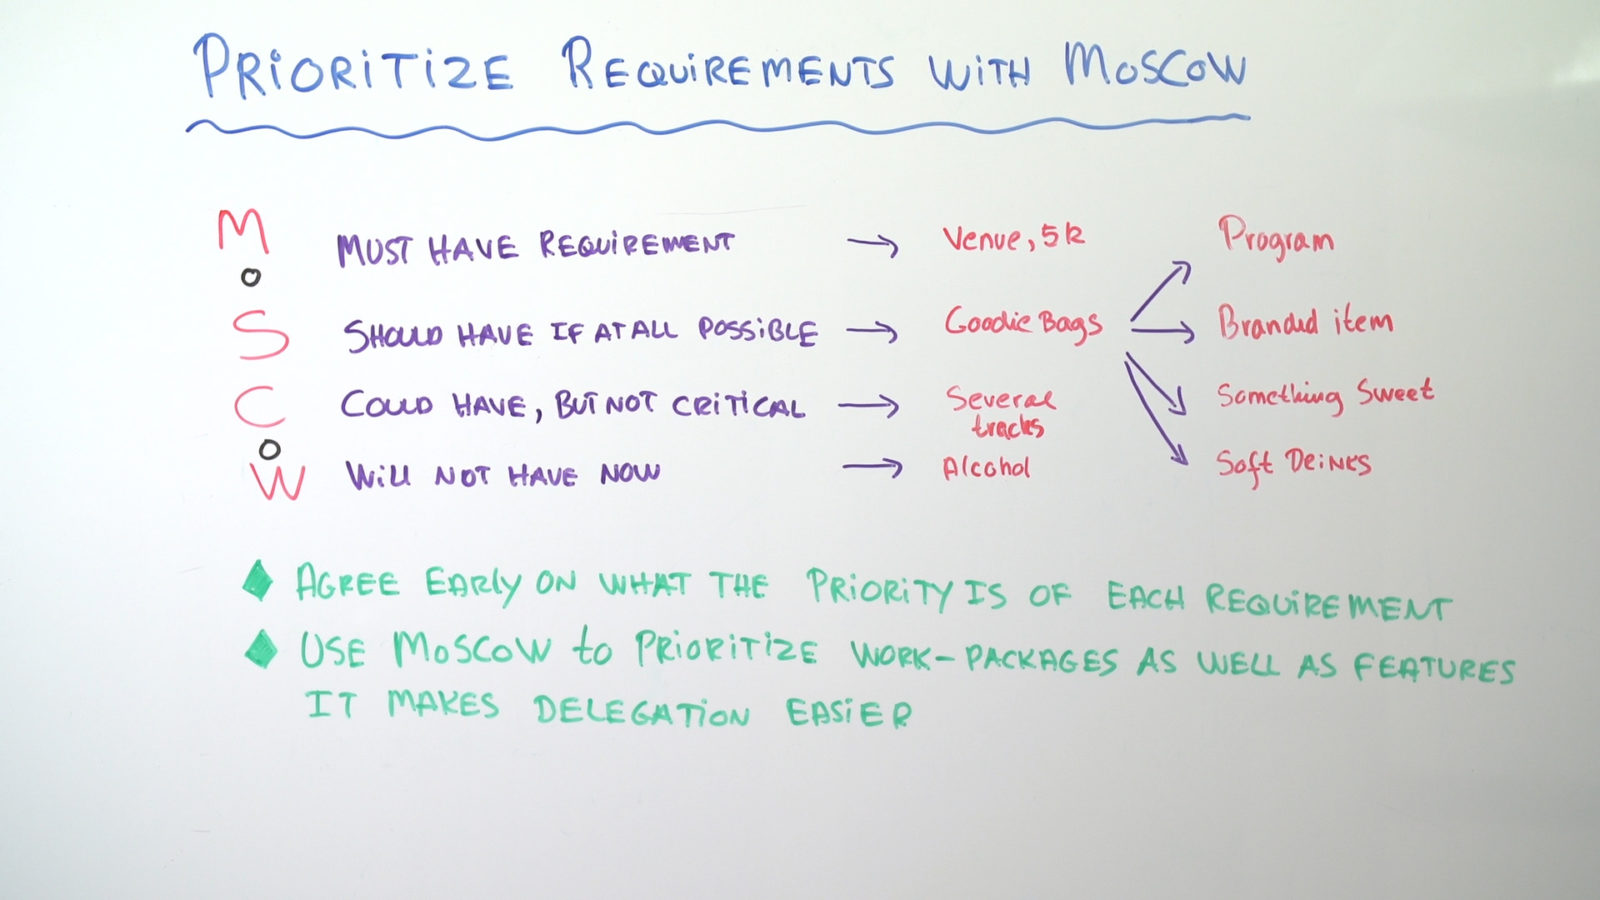 PRIORITIZE REQUIREMENTS WITH MOSCOW
M MUST HAVE REQUIREMENT → Venue, 5k Program
o
S SHOULD HAVE IF AT ALL POSSIBLE → Goodie Bags → Branded item
C COULD HAVE, BUT NOT CRITICAL → Several tracks Something Sweet
o
W WILL NOT HAVE NOW → Alcohol Soft Drinks
AGREE EARLY ON WHAT THE PRIORITY IS OF EACH REQUIREMENT
USE MOSCOW to PRIORITIZE WORK-PACKAGES AS WELL AS FEATURES
IT MAKES DELEGATION EASIER